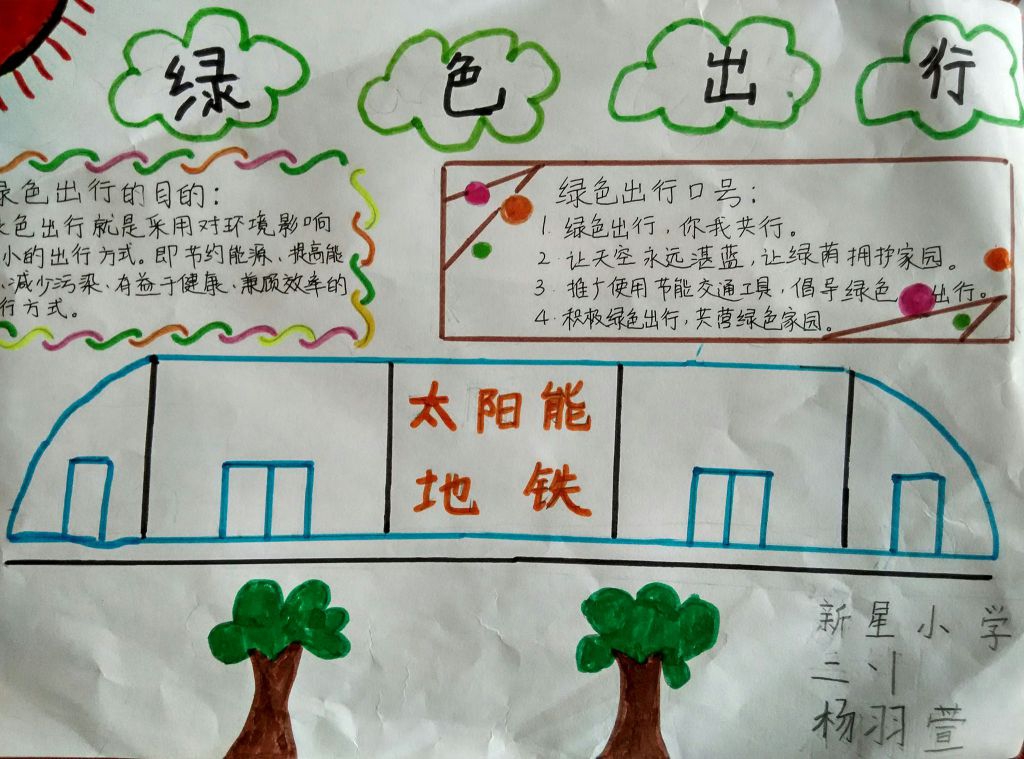 绿色出行
绿色出行的目的：
色出行就是采用对环境影响
小的出行方式。即节约能源、提高能
、减少污染、有益于健康、兼顾效率的
行方式。
绿色出行口号：
1. 绿色出行，你我共行。
2. 让天空永远湛蓝，让绿荫拥护家园。
3. 推广使用节能交通工具，倡导绿色出行。
4. 积极绿色出行，共营绿色家园。
太阳能
地铁
新星小学
三
杨羽萱